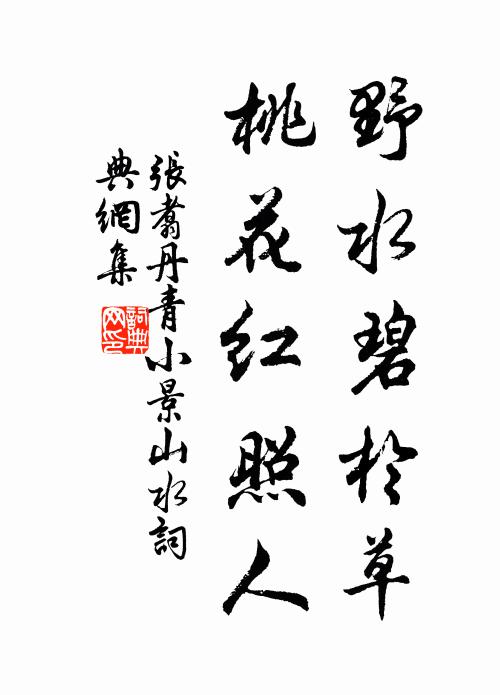 野水碧於草
桃花红照人
張翥丹青小景山水詞
典網集
詞典
网印